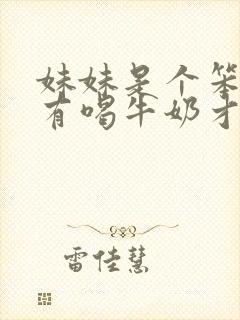 妹妹是个笨
有喝牛奶才
雷佳慧